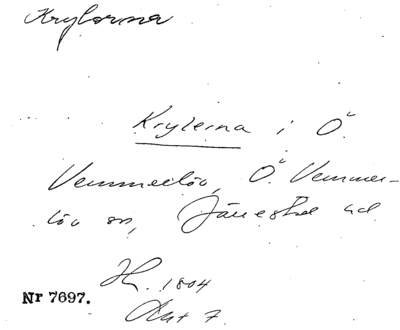 Krylorna
Krylerna i Ö
Vemmerlöv, Ö Vemmer-
löv sn, Järrestad hd
H. 1804
Akt 7
Nr 7697.